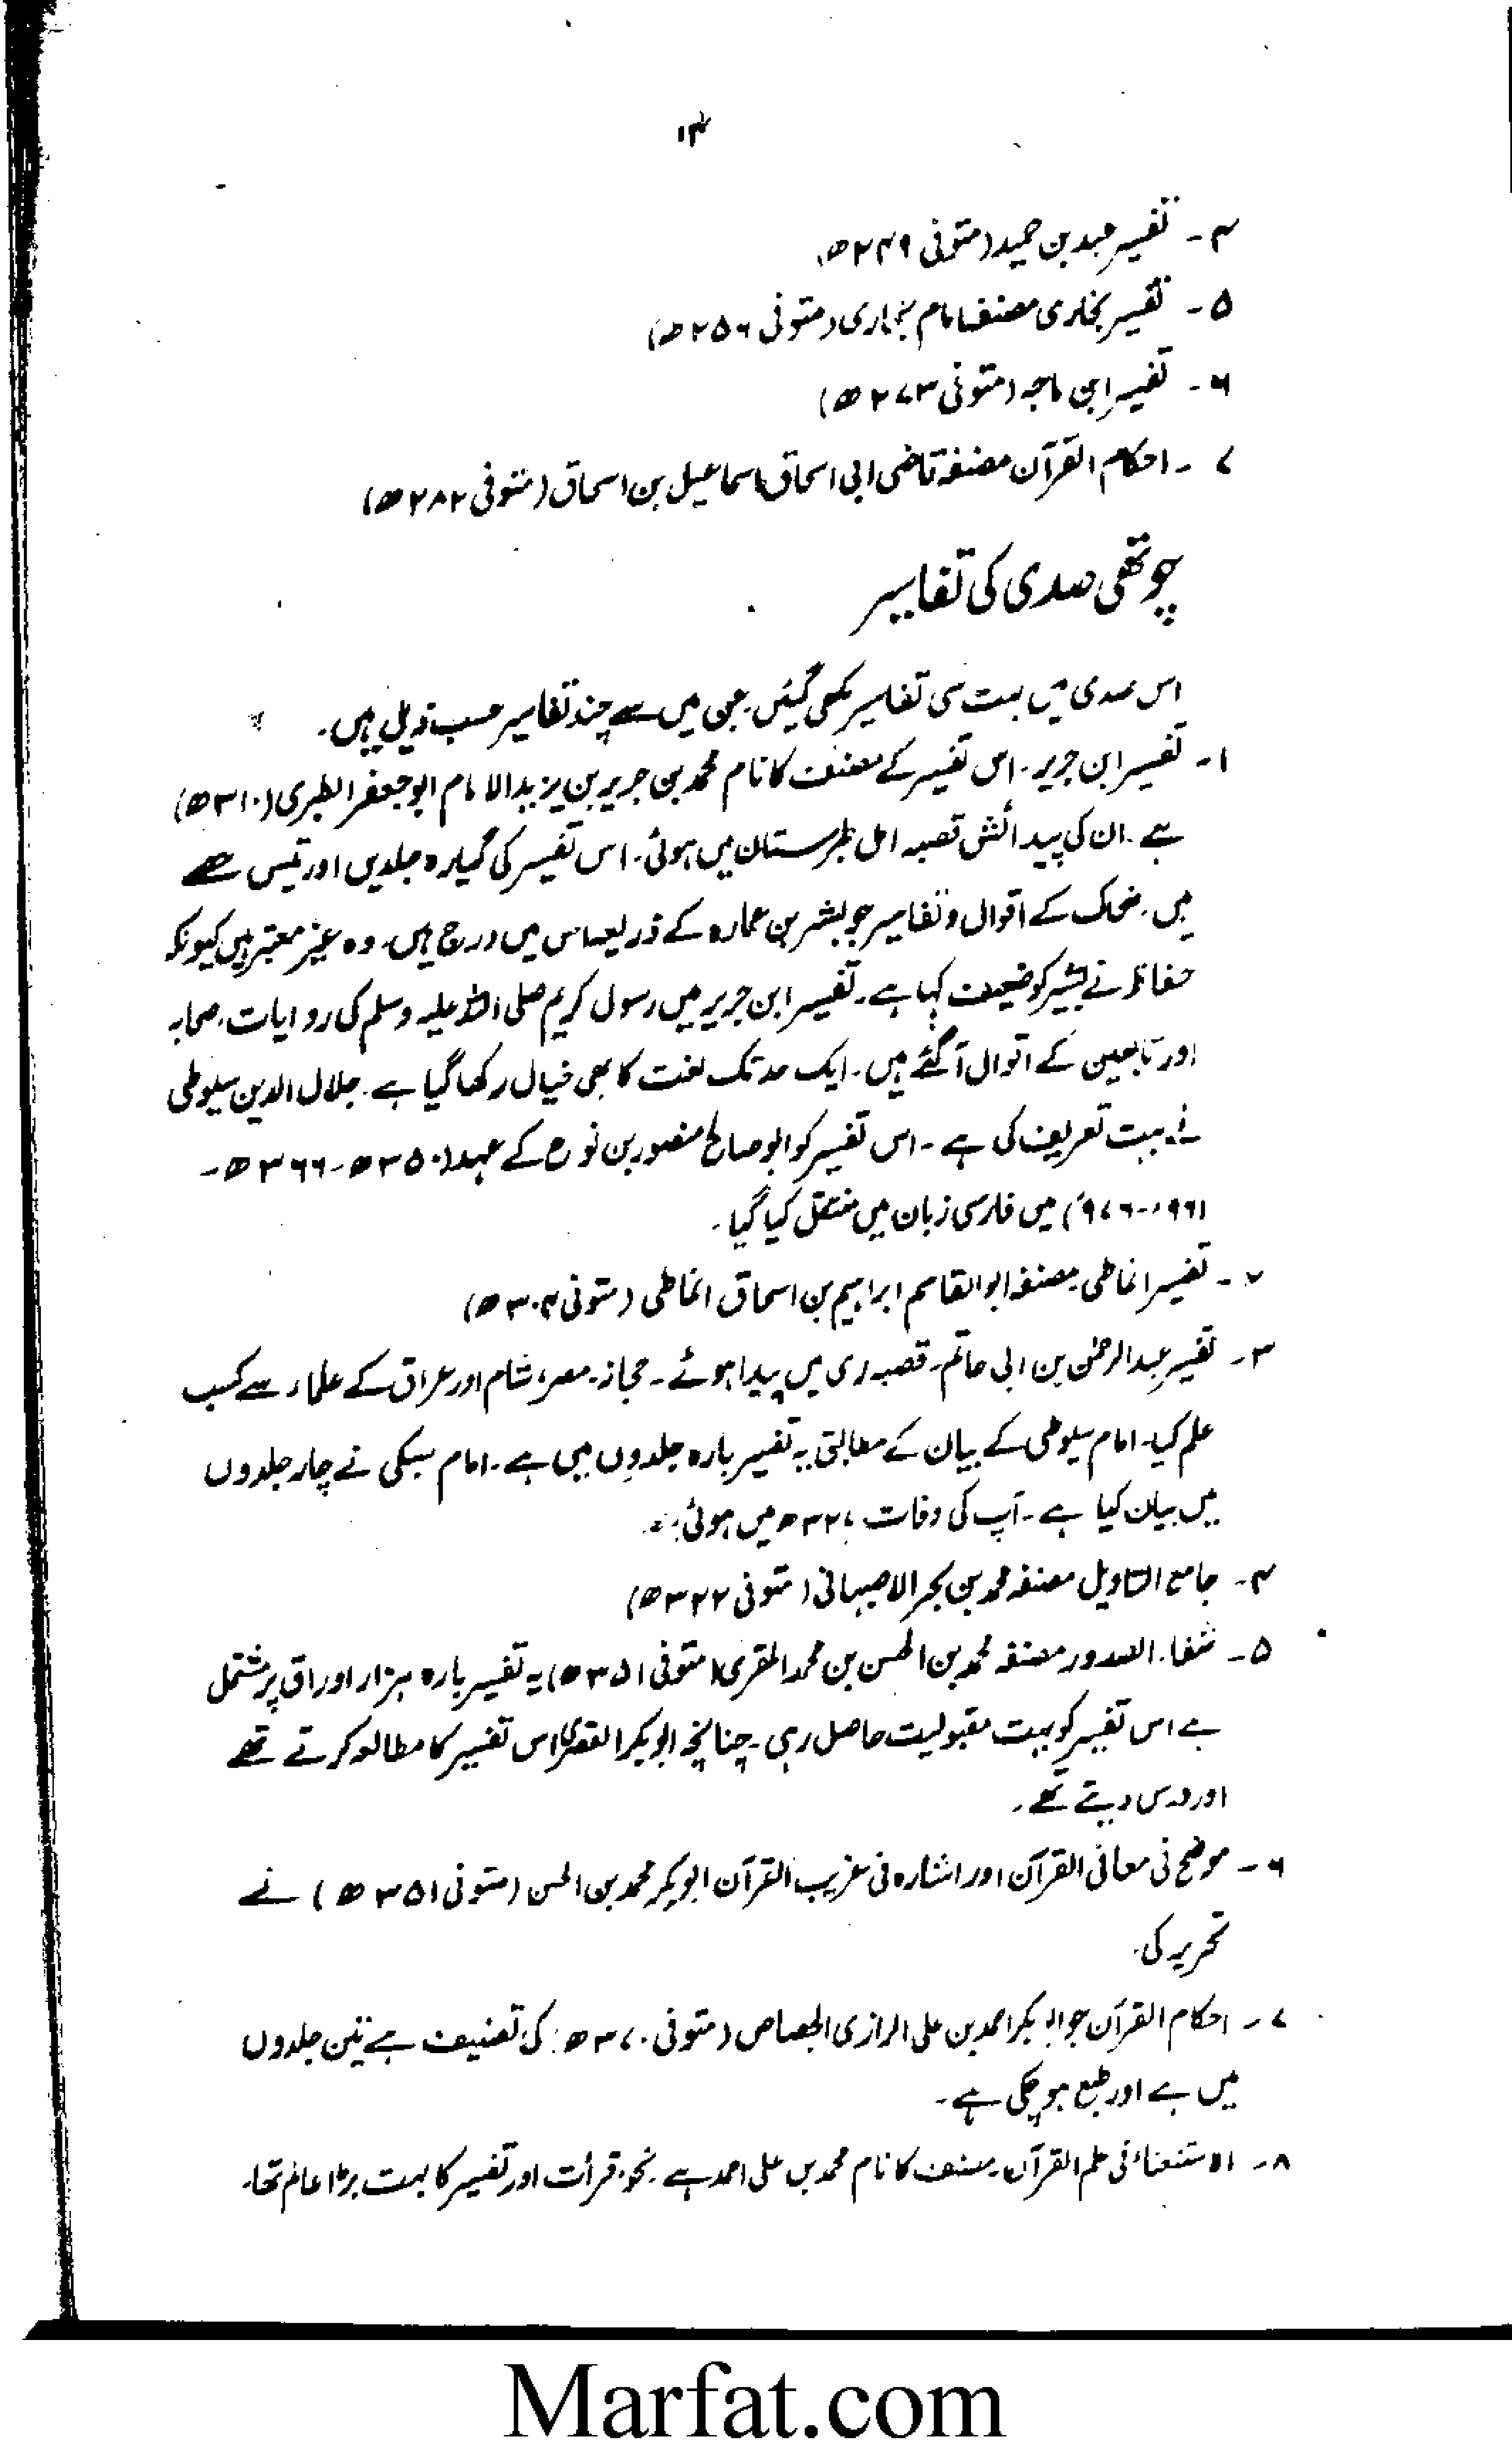 ۱۴
۴ - تفسیر عبد بن حمید (متوفی ۲۴۹ھ)
۵ - تفسیر بخاری مصنفہ امام بخاری (متوفی ۲۵۶ھ)
۶ - تفسیر ابن ماجہ (متوفی ۲۷۳ھ)
۷ - احکام القرآن مصنفہ قاضی ابی اسحاق اسماعیل بن اسحاق (متوفی ۲۸۲ھ)
چوتھی صدی کی تفاسیر
اس صدی میں بہت سی تفاسیر لکھی گئیں جن میں سے چند تفاسیر حسب ذیل ہیں۔
۱ - تفسیر ابن جریر۔ اس تفسیر کے مصنف کا نام محمد بن جریر بن یزید الامام ابو جعفر الطبری (۳۱۰ھ)
ہے۔ ان کی پیدائش قصبہ امل طبرستان میں ہوئی۔ اس تفسیر کی گیارہ جلدیں اور تیس حصے
ہیں۔ ضحاک کے اقوال و تفاسیر جو بشر بن عمارہ کے ذریعہ اس میں درج ہیں۔ وہ غیر معتبر ہیں کیونکہ
حفاظ نے بشیر کو ضعیف کہا ہے۔ تفسیر ابن جریر میں رسول کریم صلی اللہ علیہ وسلم کی روایات، صحابہ
اور تابعین کے اقوال آ گئے ہیں۔ ایک حد تک لغت کا بھی خیال رکھا گیا ہے۔ جلال الدین سیوطی
نے بہت تعریف کی ہے۔ اس تفسیر کو ابو صالح منصور بن نوح کے عہد (۳۵۰ھ - ۳۶۶ھ -
۹۶۱ء - ۹۷۶ء) میں فارسی زبان میں منتقل کیا گیا۔
۲ - تفسیر انماطی مصنفہ ابو القاسم ابراہیم بن اسحاق انماطی (متوفی ۳۰۴ھ)
۳ - تفسیر عبدالرحمٰن بن ابی حاتم۔ قصبہ ری میں پیدا ہوئے۔ حجاز۔ مصر، شام اور عراق کے علماء سے کسب
علم کیا۔ امام سیوطی کے بیان کے مطابق یہ تفسیر بارہ جلدوں میں ہے۔ امام سبکی نے چار جلدوں
میں بیان کیا ہے۔ آپ کی وفات ۳۲۷ھ میں ہوئی۔
۴ - جامع التاویل مصنفہ محمد بن بحر الاصبہانی (متوفی ۳۲۲ھ)
۵ - شفاء الصدور مصنفہ محمد بن الحسن بن محمد المقری (متوفی ۳۵۱ھ) یہ تفسیر بارہ ہزار اوراق پر مشتمل
ہے اس تفسیر کو بہت مقبولیت حاصل رہی۔ چنانچہ ابو بکر القصری اس تفسیر کا مطالعہ کرتے تھے
اور درس دیتے تھے۔
۶ - موضح فی معانی القرآن اور اشارہ فی غریب القرآن ابو بکر محمد بن الحسن (متوفی ۳۵۱ھ) نے
تحریر کی۔
۷ - احکام القرآن جو ابو بکر احمد بن علی الرازی الجصاص (متوفی ۳۷۰ھ) کی تصنیف ہے تین جلدوں
میں ہے اور طبع ہو چکی ہے۔
۸ - الاستغناء فی علم القرآن۔ مصنف کا نام محمد بن علی احمد ہے۔ نحو۔ قرأت اور تفسیر کا بہت بڑا عالم تھا۔
Marfat.com